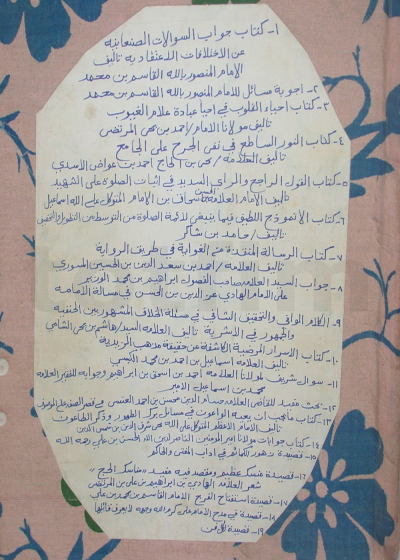 ١- كتاب جواب السوالات الصنعانيه
عن الاختلافات الاعتقاديه تاليف
الامام المنصور بالله القاسم بن محمد
٢- اجوبة مسائل للامام المنصور بالله القاسم بن محمد
٣- كتاب احياء القلوب في احيا عبادة علام الغيوب
تاليف مولانا الامام / احمد بن يحيى المرتضى
٤- كتاب النور الساطع في نفي الجرح على الجامع
تاليف العلامه / يحيى بن الحاج احمد بن عواض الاسدي
٥- كتاب القول الراجح والراي السديد في إثبات الصلوة على الشهيد
تاليف الامام العلامه الحسين بن الامام المتوكل على الله اسماعيل
٦- كتاب الانموذج اللطيف فيما ينبغي لائمة الصلوة من التوسط بين التطويل والتخفيف
تاليف / حامد بن شاكر
٧- كتاب الرسالة المنقذة من الغواية في طريق الرواية
تاليف العلامه / احمد بن سعد الدين بن الحسين المسوري
٨- جواب السيد العلامه صاحب الفصول ابراهيم بن محمد الوزير
على الامام الهادي عز الدين بن الحسن في مسالة الامامه
٩- الكلام الوافي والتحقيق الشافي في مسالة الخلاف المشهور بين الحنفيه
والجمهور في الاشربة تاليف العلامه السيد / هاشم بن يحيى الشامي
١٠- كتاب الاسرار المرضية الكاشفة عن حقيقة مذهب الزيدية
تاليف العلامة اسماعيل بن احمد بن محمد الكبسي
١١- سوال شريف لمولانا العلامه احمد بن اسحق بن ابراهيم وجوابه للبدر العلامه
محمد بن اسماعيل الامير
١٢- بحث مفيد للقاضي العلامه حسام الدين محسن بن احمد العنسي في قصر الصفه على الموصوف
١٣- كتاب مايجب ان يعيه الواعون في مسائل بركة الطهور وذكر الطاعون
تاليف الامام الاعظم المتوكل على الله يحيى شرف الدين بن شمس الدين
١٤- كتاب جوابات مولانا امير المومنين الناصر لدين الله الحسن بن علي رحمه الله
١٥- قصيدة زهور الكمائم في اداب المفتي والحاكم
١٦- قصيدة منسك عظيم ومقصد فيه مفيد مناسك الحج
شعر العلامه الهادي بن ابراهيم بن علي بن المرتضى
١٧- قصيدة استفتاح الفرج للامام القاسم بن محمد بن علي
١٨- قصيدة في مدح الامام علي كرم الله وجهه لا يعرف قائلها
١٩- قصيدة